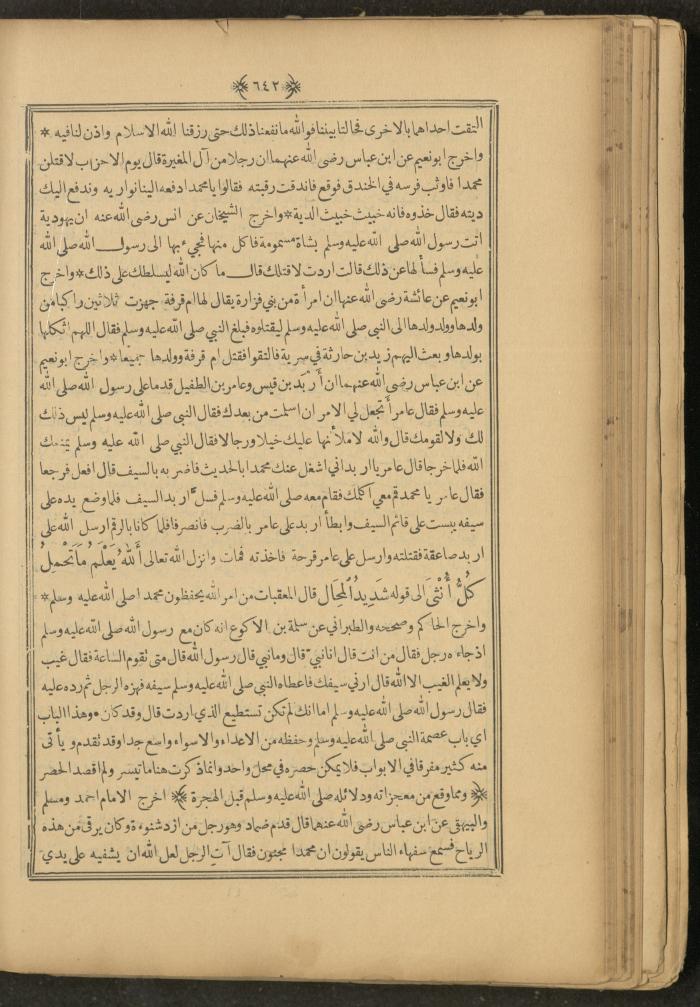 ﴿٦٤٢﴾
التقت احداهما بالاخرى فحالتا بيننا فوالله ما نفعنا ذلك حتى رزقنا الله الاسلام واذن لنا فيه *
واخرج ابونعيم عن ابن عباس رضى الله عنهما ان رجلا من آل المغيرة قال يوم الاحزاب لاقتلن
محمدا فاوثب فرسه في الخندق فوقع فاندقت رقبته فقالوا يا محمد ادفعه الينا نواريه وندفع اليك
ديته فقال خذوه فانه خبيث خبيث الدية * واخرج الشيخان عن انس رضى الله عنه ان يهودية
اتت رسول الله صلى الله عليه وسلم بشاة مسمومة فاكل منها فجيء بها الى رسول الله صلى الله
عليه وسلم فسألها عن ذلك قالت اردت لاقتلك قال ما كان الله ليسلطك على ذلك * واخرج
ابونعيم عن عائشة رضى الله عنها ان امرأة من بني فزارة يقال لها ام قرفة جهزت ثلاثين راكبا من
ولدها وولد ولدها الى النبي صلى الله عليه وسلم ليقتلوه فبلغ النبي صلى الله عليه وسلم فقال اللهم اثكلها
بولدها وبعث اليهم زيد بن حارثة في سرية فالتقوا فقتل ام قرفة وولدها جميعا * واخرج ابونعيم
عن ابن عباس رضى الله عنهما ان أربد بن قيس وعامر بن الطفيل قدما على رسول الله صلى الله
عليه وسلم فقال عامر أتجعل لي الامر ان اسلمت من بعدك فقال النبي صلى الله عليه وسلم ليس ذلك
لك ولا لقومك قال والله لاملأنها عليك خيلا ورجالا فقال النبي صلى الله عليه وسلم يمنعك
الله فلما خرجا قال عامر يا اربد اني اشغل عنك محمدا بالحديث فاضربه بالسيف قال افعل فرجعا
فقال عامر يا محمد قم معي اكلمك فقام معه صلى الله عليه وسلم فسل اربد السيف فلما وضع يده على
سيفه يبست على قائم السيف وابطأ اربد على عامر بالضرب فانصرفا فلما كانا بالرقم ارسل الله على
اربد صاعقة فقتلته وارسل على عامر قرحة فاخذته فمات وانزل الله تعالى أَللهُ يَعْلَمُ مَا تَحْمِلُ
كُلُّ أُنْثَى الى قوله شَدِيدُ الْمِحَالِ قال المعقبات من امر الله يحفظون محمدا صلى الله عليه وسلم *
واخرج الحاكم وصححه والطبراني عن سلمة بن الاكوع انه كان مع رسول الله صلى الله عليه وسلم
اذ جاءه رجل فقال من انت قال انا نبي قال وما نبي قال رسول الله قال متى تقوم الساعة فقال غيب
ولا يعلم الغيب الا الله قال ارني سيفك فاعطاه النبي صلى الله عليه وسلم سيفه فهزه الرجل ثم رده عليه
فقال رسول الله صلى الله عليه وسلم اما انك لم تكن تستطيع الذي اردت قال وقد كان * وهذا الباب
اي باب عصمة النبي صلى الله عليه وسلم وحفظه من الاعداء والاسواء واسع جدا وقد تقدم ويأتى
منه كثير مفرقا في الابواب فلا يمكن حصره في محل واحد وانما ذكرت هنا ما تيسر ولم اقصد الحصر
﴿ ومما وقع من معجزاته ودلائله صلى الله عليه وسلم قبل الهجرة ﴾ اخرج الامام احمد ومسلم
والبيهقي عن ابن عباس رضى الله عنهما قال قدم ضماد وهو رجل من ازد شنوءة وكان يرقى من هذه
الرياح فسمع سفهاء الناس يقولون ان محمدا مجنون فقال آت الرجل لعل الله ان يشفيه على يدي